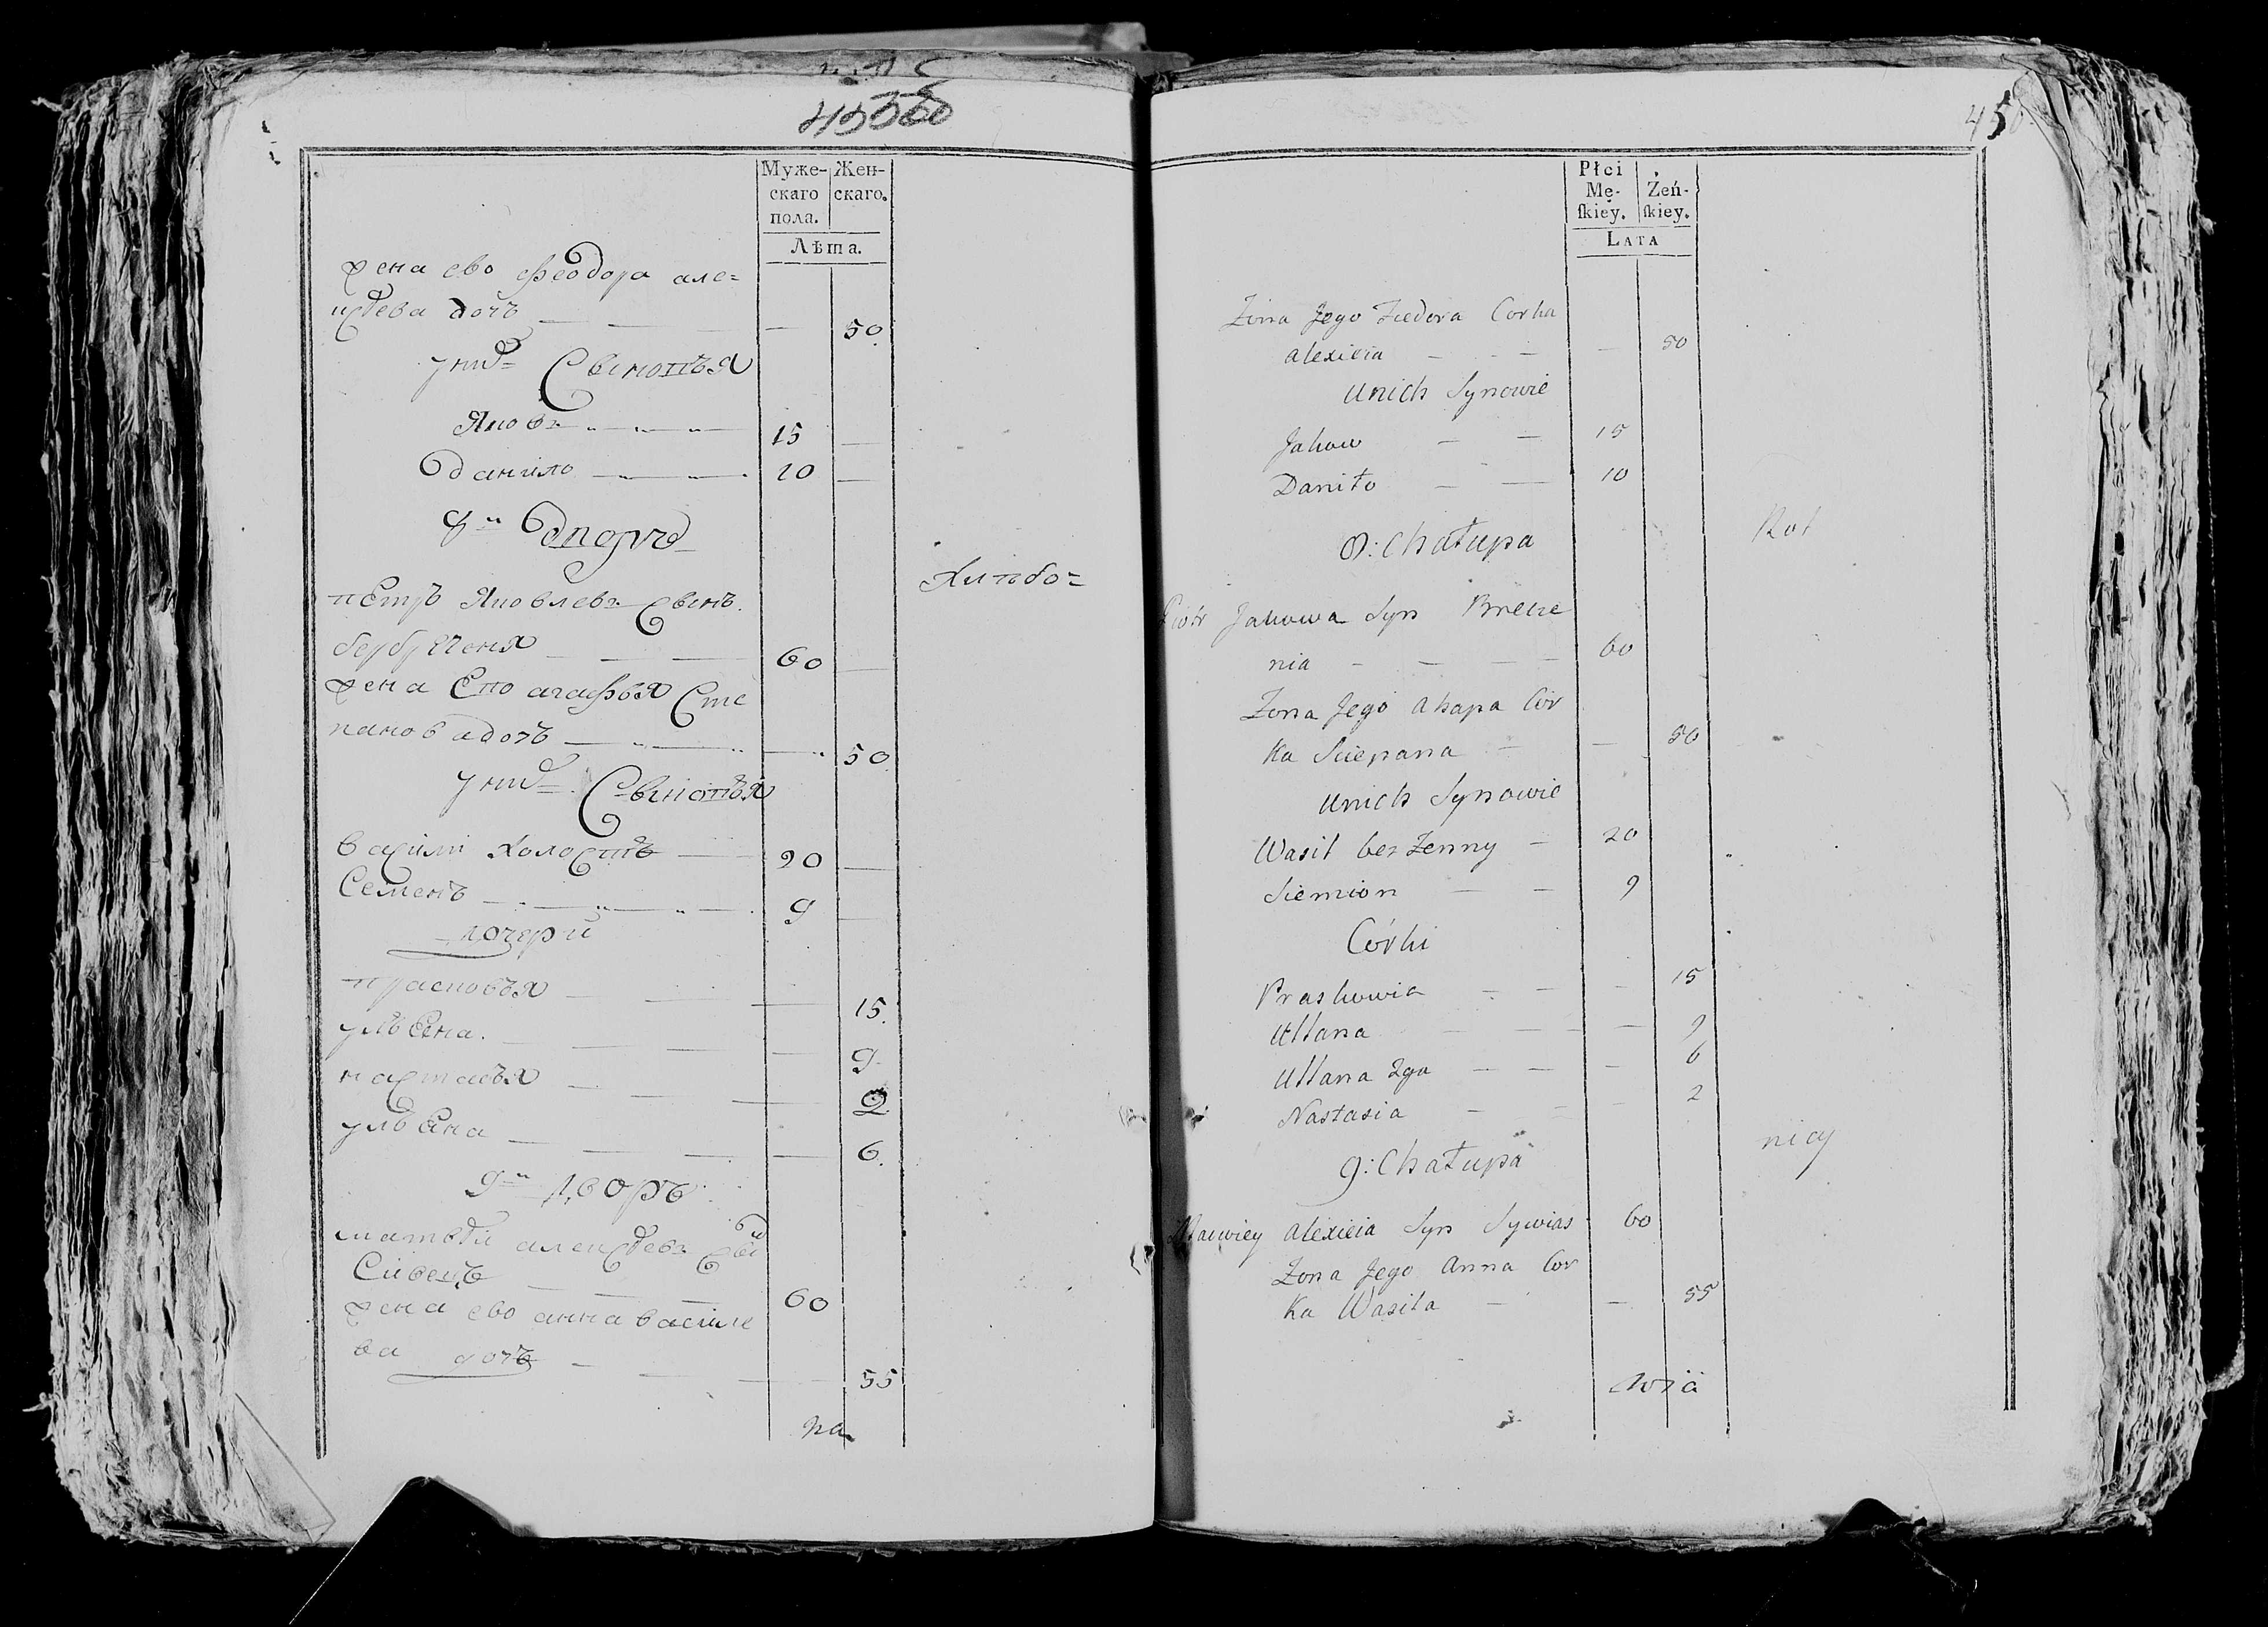 Муже-
скаго
пола.
Жен-
скаго.
Лѣта.
жена ево феодора але=
ксѣева дочъ — — — 50
у нихъ Синовъя
Яковъ — — — 15 —
данило — — — 10 —
8й дворъ
Хлибо=
петръ Яковлевъ Синъ
— — — 60 —
жена Ево агафья Сте
панова дочъ — — — 50
у нихъ Синовъя
васили холостъ — 20 —
Семенъ — — — 9 —
дочери
прасковъя — — — 15.
улъяна. — — — 9
настасъя — — — 2
улъяна — — — 6.
9й дворъ
матвѣй алексѣевъ Синъ
Сивецъ — — — 60
жена ево анна василе
ва дочъ — — — 55
на
45
Płci
Mę-
skiey.
Żeń-
skiey.
LATA
Żona Jego Fiedora Corka
alexieia — — — — 50
unich Synowie
Jakow — — 15
Daniło — — 10
8: Chałupa
Rol
Piotr Jakowa Syn
nia — — — 60
Żona Jego ahapa Cor
ka Sciepana — — 50
unich Synowie
Wasil bez Żenny — 20
Siemion — — 9
Córki
Praskowia — — — 15
Ullana — — — 9
Ullana 2ga — — — 6
Nastasia — — — 2
9: Chałupa
nicy
Maćwiey alexieia Syn Sywias 60
Żona Jego Anna Cor
ka Wasila — — 55